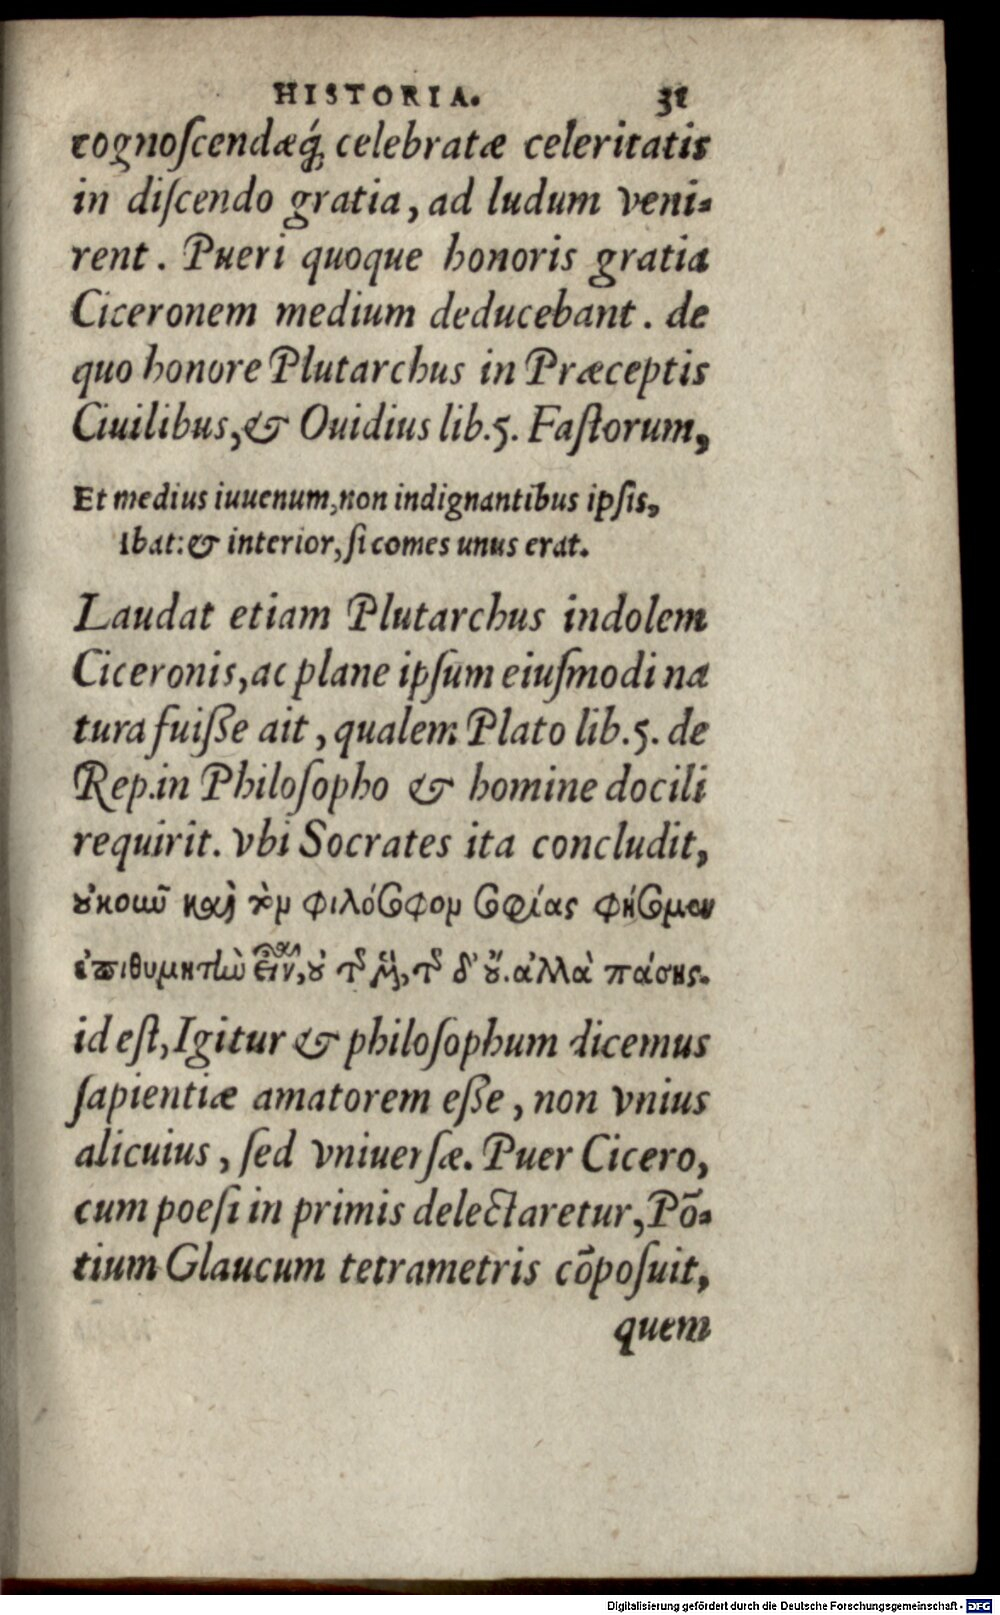 HISTORIA. 31
cognoſcendæq́; celebratæ celeritatis
in diſcendo gratia, ad ludum veni-
rent. Pueri quoque honoris gratia
Ciceronem medium deducebant. de
quo honore Plutarchus in Præceptis
Ciuilibus, & Ouidius lib.5. Faſtorum,
Et medius iuuenum, non indignantibus ipſis,
Ibat: & interior, ſi comes unus erat.
Laudat etiam Plutarchus indolem
Ciceronis, ac plane ipſum eiuſmodi na
tura fuiſſe ait, qualem Plato lib.5. de
Rep. in Philoſopho & homine docili
requirit. vbi Socrates ita concludit,
ȣ̓κοιοῦ καὶ τὸμ φιλόσοφομ σοφίας φήσομεν
ἐπιθυμητἰω εἶναι, ȣ̓ τῆς μ, τῆς δ' ȣ̓. ἀλλὰ πάσης.
id eſt, Igitur & philoſophum dicemus
ſapientiæ amatorem eſſe, non vnius
alicuius, ſed vniuerſæ. Puer Cicero,
cum poeſi in primis delectaretur, Põ-
tium Glaucum tetrametris cõpoſuit,
quem
Digitalisierung gefördert durch die Deutsche Forschungsgemeinschaft - DFG